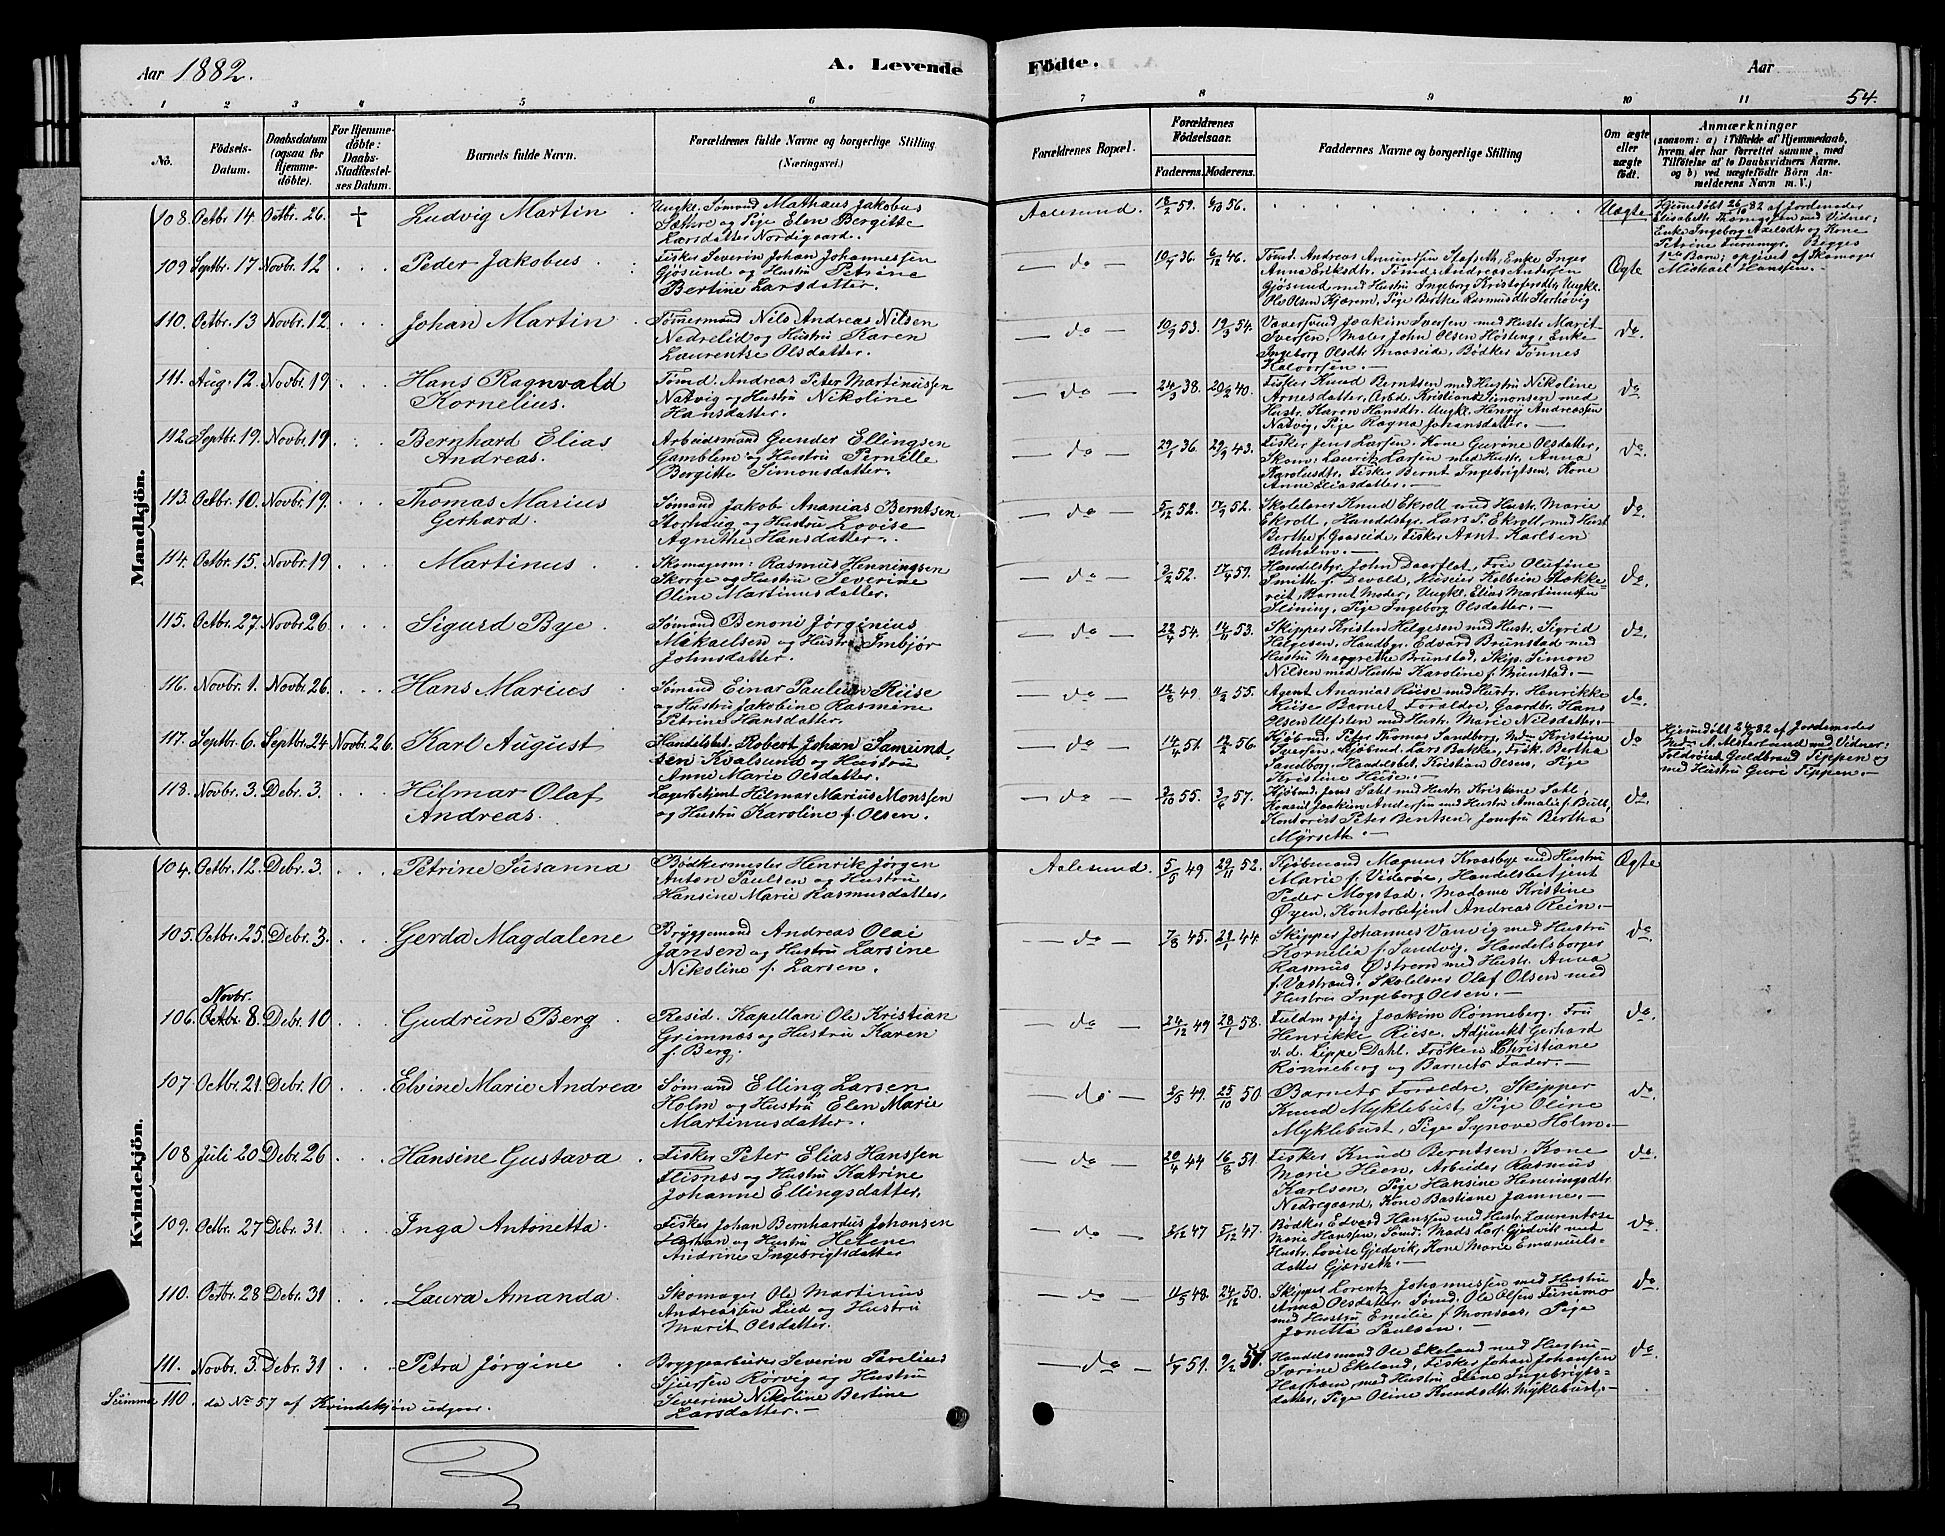 Aar 1882.
A. Levende
Födte.
Aar
54.
1 2 3 4 5 6 7 8 9 10 11
No.
Födsels-
Datum.
Daabsdatum
(ogsaa for
Hjemme-
döbte).
For Hjemme-
döbte:
Daabs-
Stadfæstel-
ses Datum.
Barnets fulde Navn.
Forældrenes fulde Navne og borgerlige Stilling
(Næringsvei.)
Forældrenes Bopæl.
Forældrenes
Födselsaar.
Faderens. Moderens.
Faddernes Navne og borgerlige Stilling
Om ægte
eller
uægte
födt.
Anmærkninger
(saasom: a) i Tilfælde af Hjemmedaab,
hvem der har forrettet samme, med
Tilföielse af to Daabsvidners Navne.
og b) ved uægtefödte Börn An-
melderens Navn m. V.)
Mandkjön.
108. Octbr. 14 Octbr. 26. † Ludvig Martin
Ungkl. Sømand Mathæus Jakobus
Sætre og Pige Elen Bergitte
Larsdatter Nordigaard.
Aalesund. 18/2 59. 6/10 56.
Uægte
Hjemmedøbt 26/10 82 af Jordemoder
Elisabeth Thomassen med Vidner:
Enke Ingeborg Axelsdtr og Kone
Petrine Furumyr. Begges
1ste Barn; opgivet af Skomager
Michael Hanssen.
109 Septbr. 17 Novbr. 12 Peder Jakobus
Fisker Severin Johan Johannessen
Gjøsund og Hustru Petrine
Bertine Larsdatter.
do 36. 6/12 46.
Tømd. Andreas Amundsen Stafseth, Enke Inger
Anne Eriksdtr. Tømd. Andreas Andersen
Gjøsund med Hustru Ingeborg Kristofersdtr, Ungkl.
Ole Olsen Kjærem, Pige Berthe Rasmusdtr Storhøvig
Ægte
110. Octbr. 13 Novbr. 12 Johan Martin
Tømmermand Nils Andreas Nilsen
Nedrelid og Hustru Karen
Laurentse Olsdatter.
do 10/9 53. 19/3 54.
Vaaersvend Joakim Iversen med Hustr. Marit
Iversen, Maler John Olsen Høsting, Enke
Ingeborg Olsdtr Maaseide, Bødker Tønnes
Halvorsen.
do.
111. Aug. 12 Novbr. 19 Hans Ragnvald
Kornelius.
Tømd. Andreas Peter Martinussen
Natvig og Hustru Nikoline
Hansdatter.
do 24/3 38. 20/2 40.
Fisker Knud Berntsen med Hustru Nikoline
Arnesdatter, Arbd. Kristian Simonsen med
Hustr. Karen Hansdtr. Ungkl. Henry Andreassen
Natvig, Pige Ragna Johansdatter.
do
112. Septbr. 19. Novbr. 19 Bernhard Elias
Andreas.
Arbeidsmand Gunder Ellingsen
Gamblem og Hustru Pernille
Bergitte Simonsdatter.
do 29/1 36. 29/9 43.
Fisker Jens Larsen. Kone Gurine Olsdatter,
Skom. Laurits Larsen med Hustr. Anna
Karolusdtr, Fisker Bernt Ingebrigtsen, Kone
Anne Eliasdatter.
do.
113. Octbr. 10. Novbr. 19. Thomas Marius
Gerhard.
Sømand Jakob Ananias Berntsen
Storhaug og Hustru Lovise
Agnethe Hansdatter.
do 5/12 52. 17/9 52.
Skolelærer Knud Ekroll med Hustr. Marie
Ekroll, Handelsbgr. Lars P. Ekroll med Hustr.
Berthe f. Gaaseide, Fisker Arnt Karlsen
Buholm.
do.
114. Octbr. 15. Novbr. 19 Martinus
Skomagersv. Rasmus Henningsen
Skorge og Hustru Severine
Oline Martinusdatter.
do 3/2 52. 17/4 51.
Handelsbgr. John Daarflot, Fru Olufine
Smith f. Devold, Huseier Kolbein Stokke-
reit, Barnet Moder, Ungkl. Elias Martinussen
Fliining, Pige Ingeborg Olsdatter.
do.
115. Octbr. 27. Novbr. 26 Sigurd Bye
Sømand Benoni Jørginius
Mikaelsen og Hustru Imbjør
Johnsdatter.
do 22/4 54. 14/11 53.
Skipper Kristen Helgesen med Hustr. Sigrid
Helgesen, Handbgr. Edvard Brunstad med
Hustru Magrethe Brunstad, Skip. Simon
Nilsen med Hustru Karoline f. Brunstad.
do.
116. Novbr. 1. Novbr. 26. Hans Marius
Sømand Einar Paulinus Riise
og Hustru Jakobine Rasmine
Petrine Hansdatter.
do 49. 55.
Agent Ananias Riise med Hustr. Henrikke
Riise Barnet Forældre, Gaardbr. Hans
Olsen Ulfsten med Hustr. Marie Nilsdatter.
do
117. Septbr. 6. Septbr. 24 Novbr. 26. Karl August
Handelsbet. Robert Johan Samund-
sen Kvalsund og Hustru
Anne Marie Olsdatter.
do 51. 56.
Kjøbmd. Peter Thomas Sandborg, Md. Kristine
Iversen, Kjøbmd. Lars Bakke, Frøk. Bertha
Sandborg, Handelsbet. Kristian Olsen, Pige
Kristine Huse.
do
Hjemmedøbt 24/9 82 af Jordemoder
Md. A. Alsterlund med Vidner:
Toldrorsb. Guldbrand Tippen og
med Hustru Guri Tippen.
118. Novbr. 3. Debr. 3. Hilmar Olaf
Andreas.
Lagerbetjent Hilmar Marius Monssen
og Hustru Karoline f. Olsen.
do 3/10 55. 3/6 57.
Kjøbmd. Jens Sahl med Hustr. Kristine Sahl,
Konsul Joakim Andersen med Hustru Amalie f. Bull,
Kontorist Peter Bentsen, Jomfru Bertha
Myrseth.
do.
Kvindekjön.
104. Octbr. 12. Debr. 3. Petrine Susanna
Bødkermester Henrik Jørgen
Anton Paulsen og Hustru
Hansine Marie Rasmusdatter.
Aalesund. 5/5 49 29/11 52.
Kjøbmand Magnus Kvasbye med Hustru
Marie f. Viderøe, Handelsbetjent
Peder Mogstad, Madame Kristine
Øyen, Kontorbetjent Andreas Rein.
Ægte
105. Octbr. 25. Debr. 3. Gerda Magdalene
Bryggemand Andreas Olai
Jansen og Hustru Larsine
Nikoline f. Larsen.
do 7/8 45. 29/1 44.
Skipper Johannes Vanvig med Hustru
Kornelia f. Sandvig, Handelsborger
Rasmus Østrem med Hustr. Anna
f. Vastrand, Skolelærer Olaf Olsen med
Hustru Ingeborg Olsen.
do.
Novbr.
106. Octbr. 8. Debr. 10 Gudrun Berg
Resid. Kapellan Ole Kristian
Grimnæs og Hustru Karen
f. Berg.
do 24/12 49 28/1 58.
Fuldmægtig Joakim Rønneberg. Fru
Henrikke Riise, Adjunkt Gerhard
v. d. Lippe Dahl. Frøken Christiane
Rønneberg og Barnets Fader.
do.
107. Octbr. 21. Debr. 10 Elvine Marie Andrea
Sømand Elling Larsen
Holm og Hustru Elen Marie
Martinusdatter.
do 3/5 49. 25/10 50
Barnets Forældre, Skipper
Knud Myklebust, Pige Oline
Myklebust, Pige Synove Holm.
do.
108 Juli 20 Debr. 26 Hansine Gustava
Fisker Peter Elias Hanssen
Flisnæs og Hustru Katrine
Johanne Ellingsdatter.
do 20/4 44 16/8 51.
Fisker Knud Berntsen, Kone
Marie Heen, Arbeider Rasmus
Karlsen, Pige Hansine Henningsdtr
Nedregaard, Kone Bastiane Jamne.
do.
109. Octbr. 27 Debr. 31 Inga Antonetta
Fisker Johan Bernhardus Johansen
Harham og Hustru Helene
Andrine Ingebrigtsdatter
do 3/12 47 5/12 47.
Bødker Edvard Hanssen med Hustr. Laurentse
Marie Hanssen, Tømd. Mads Lars. Gjedvik med
Hustr. Lovise Gjedvik, Kone Marie Emanuels-
datter Gjærseth.
do
110. Octbr. 28 Debr. 31 Laura Amanda
Skomager Ole Martinus
Andreassen Lied og Hustru
Marit Olsdatter.
do 11/5 48. 24/12 50.
Skipper Lorents Johannessen med Hustru
Anna Olsdatter. Tømd. Ole Olsen Furumo
med Hustru Emilie f. Monsaas, Pige
Jonetta Paulsen.
do.
111. Novbr. 3. Debr. 31 Petra Jørgine
Bryggearbeider Severin Parelius
Sjursen Rørvig og Hustru
Severine Nikoline Bertine
Larsdatter.
do 51. 9/2 51.
Handelsmand Ole Ekeland med Hustru
Ivrine Ekeland, Fisker Johan Johansen
Harham med Hustru Elene Ingebrigts-
datter, Pige Oline Knudsdtr Myklebust.
do.
Summa 110. da No 57 af Kvindekjøn udgaar.